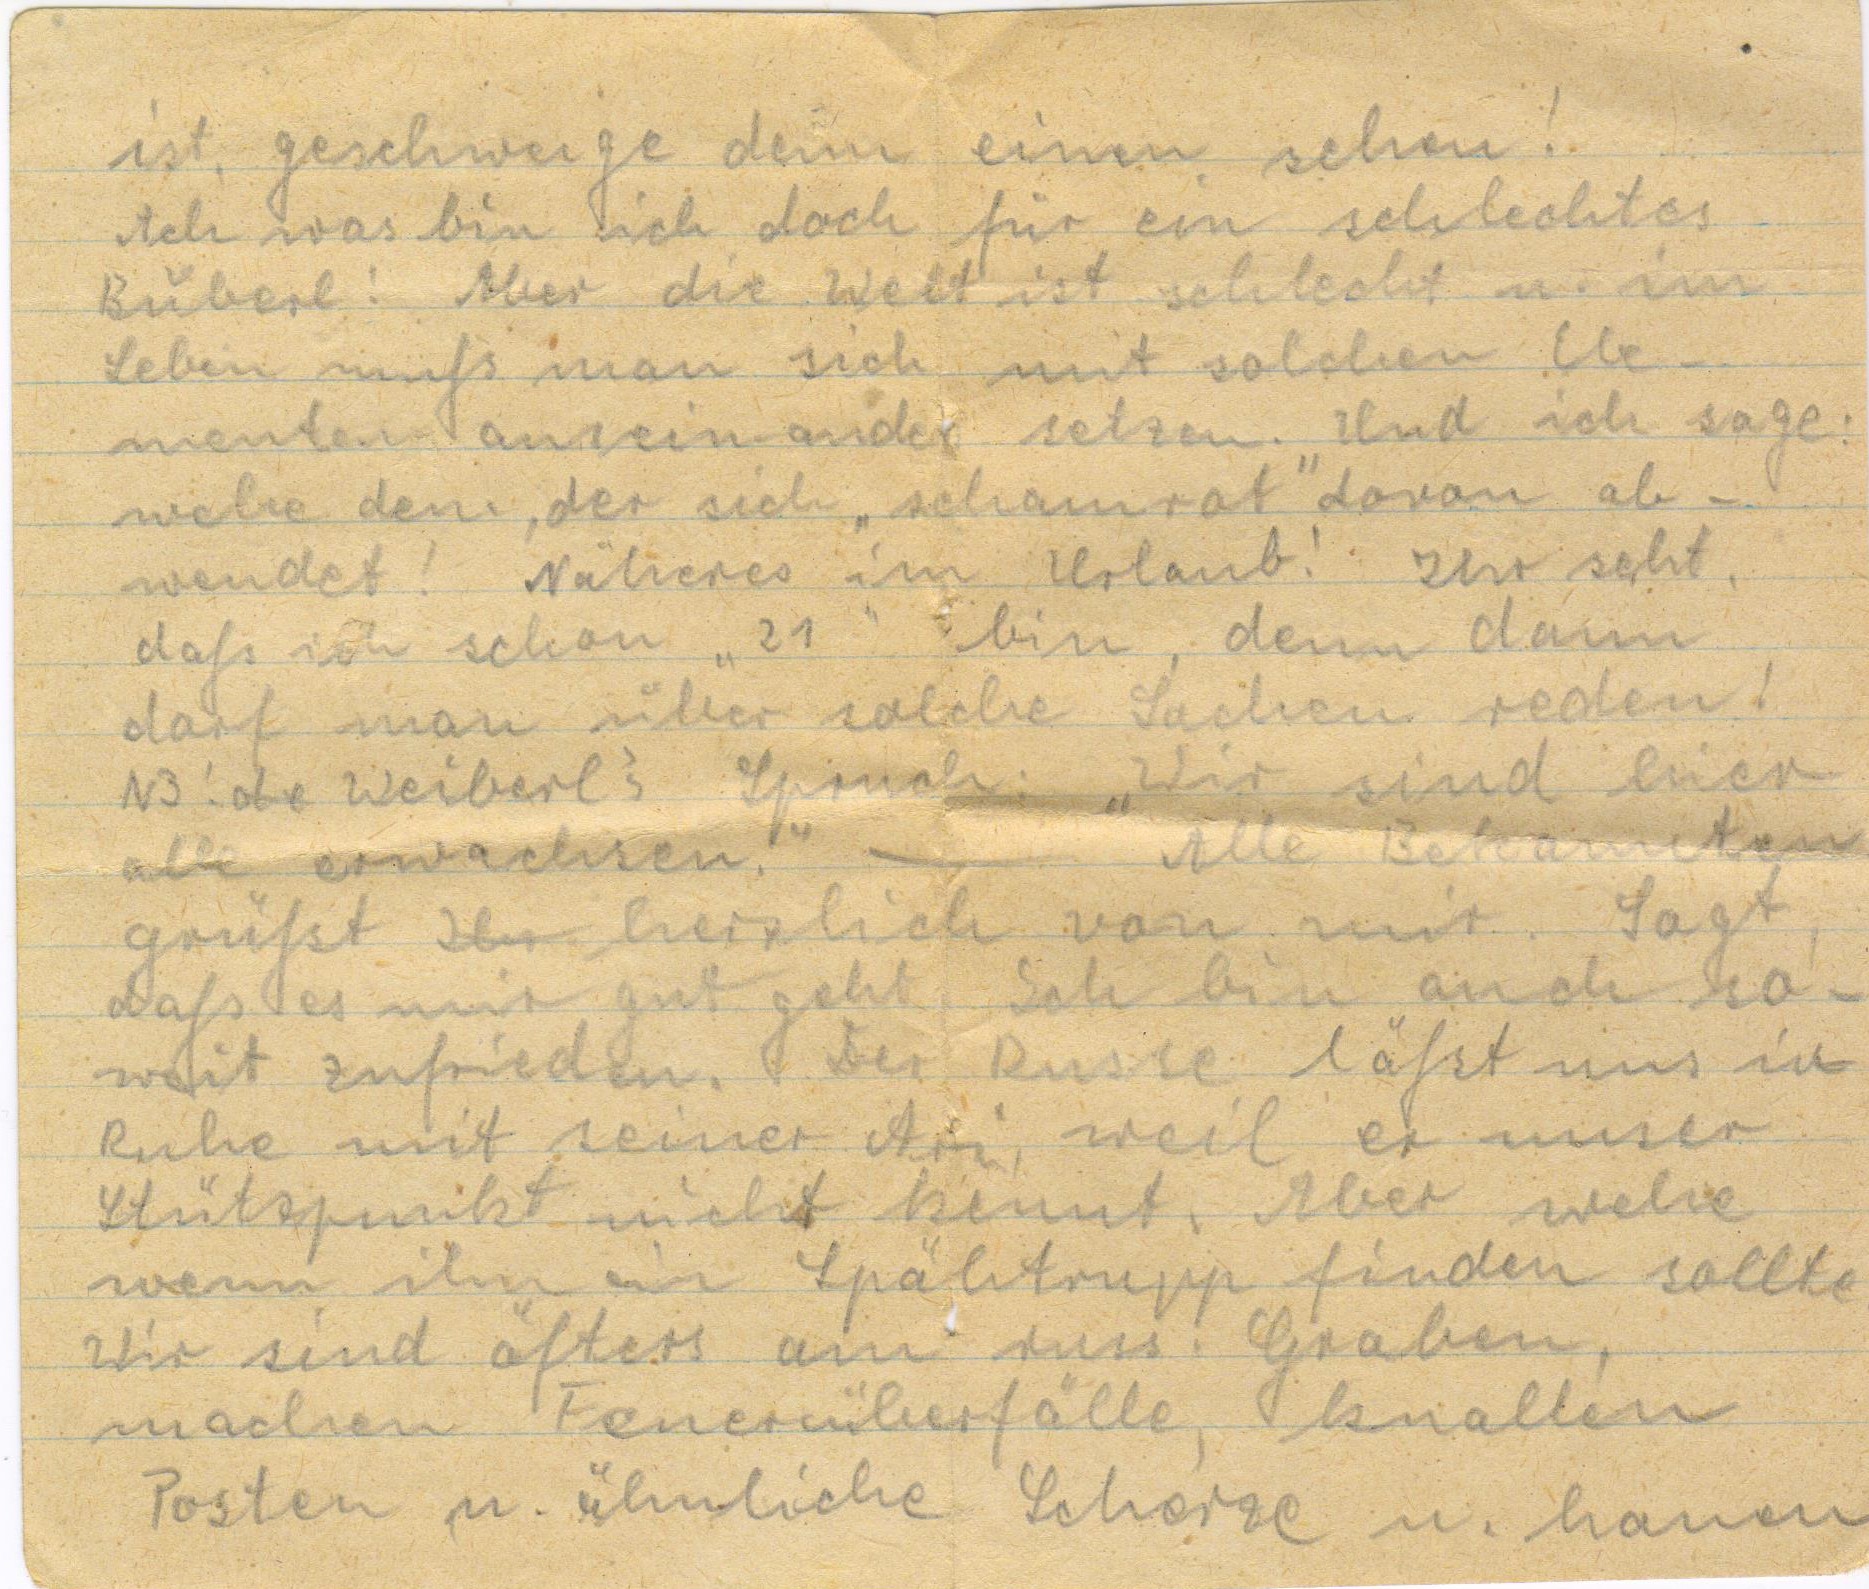 ist, geschweige denn einen sehen!
Ach was bin ich doch für ein schlechtes
Büberl! Aber die Welt ist schlecht u. im
Leben muß man sich mit solchen Ele-
menten auseinander setzen. Und ich sage:
wehe dem, der sich „schamrot" davon ab-
wendet! Näheres im Urlaub! Ihr seht,
daß ich schon „21" bin, denn dann
darf man über solche Sachen reden!
NB! de Weiberl's Spruch: „Wir sind hier
alle erwachsen." — Alle Bekannten
grüßt Ihr herzlich von mir. Sagt,
daß es mir gut geht. Ich bin auch so-
weit zufrieden. Der Russe läßt uns in
Ruhe mit seiner Ari, weil er unser
Stützpunkt nicht kennt. Aber wehe
wenn ihn ein Spähtrupp finden sollte
Wir sind öfters am russ. Graben,
machen Feuerüberfälle, knallen
Posten u. ähnliche Scherze u. hauen